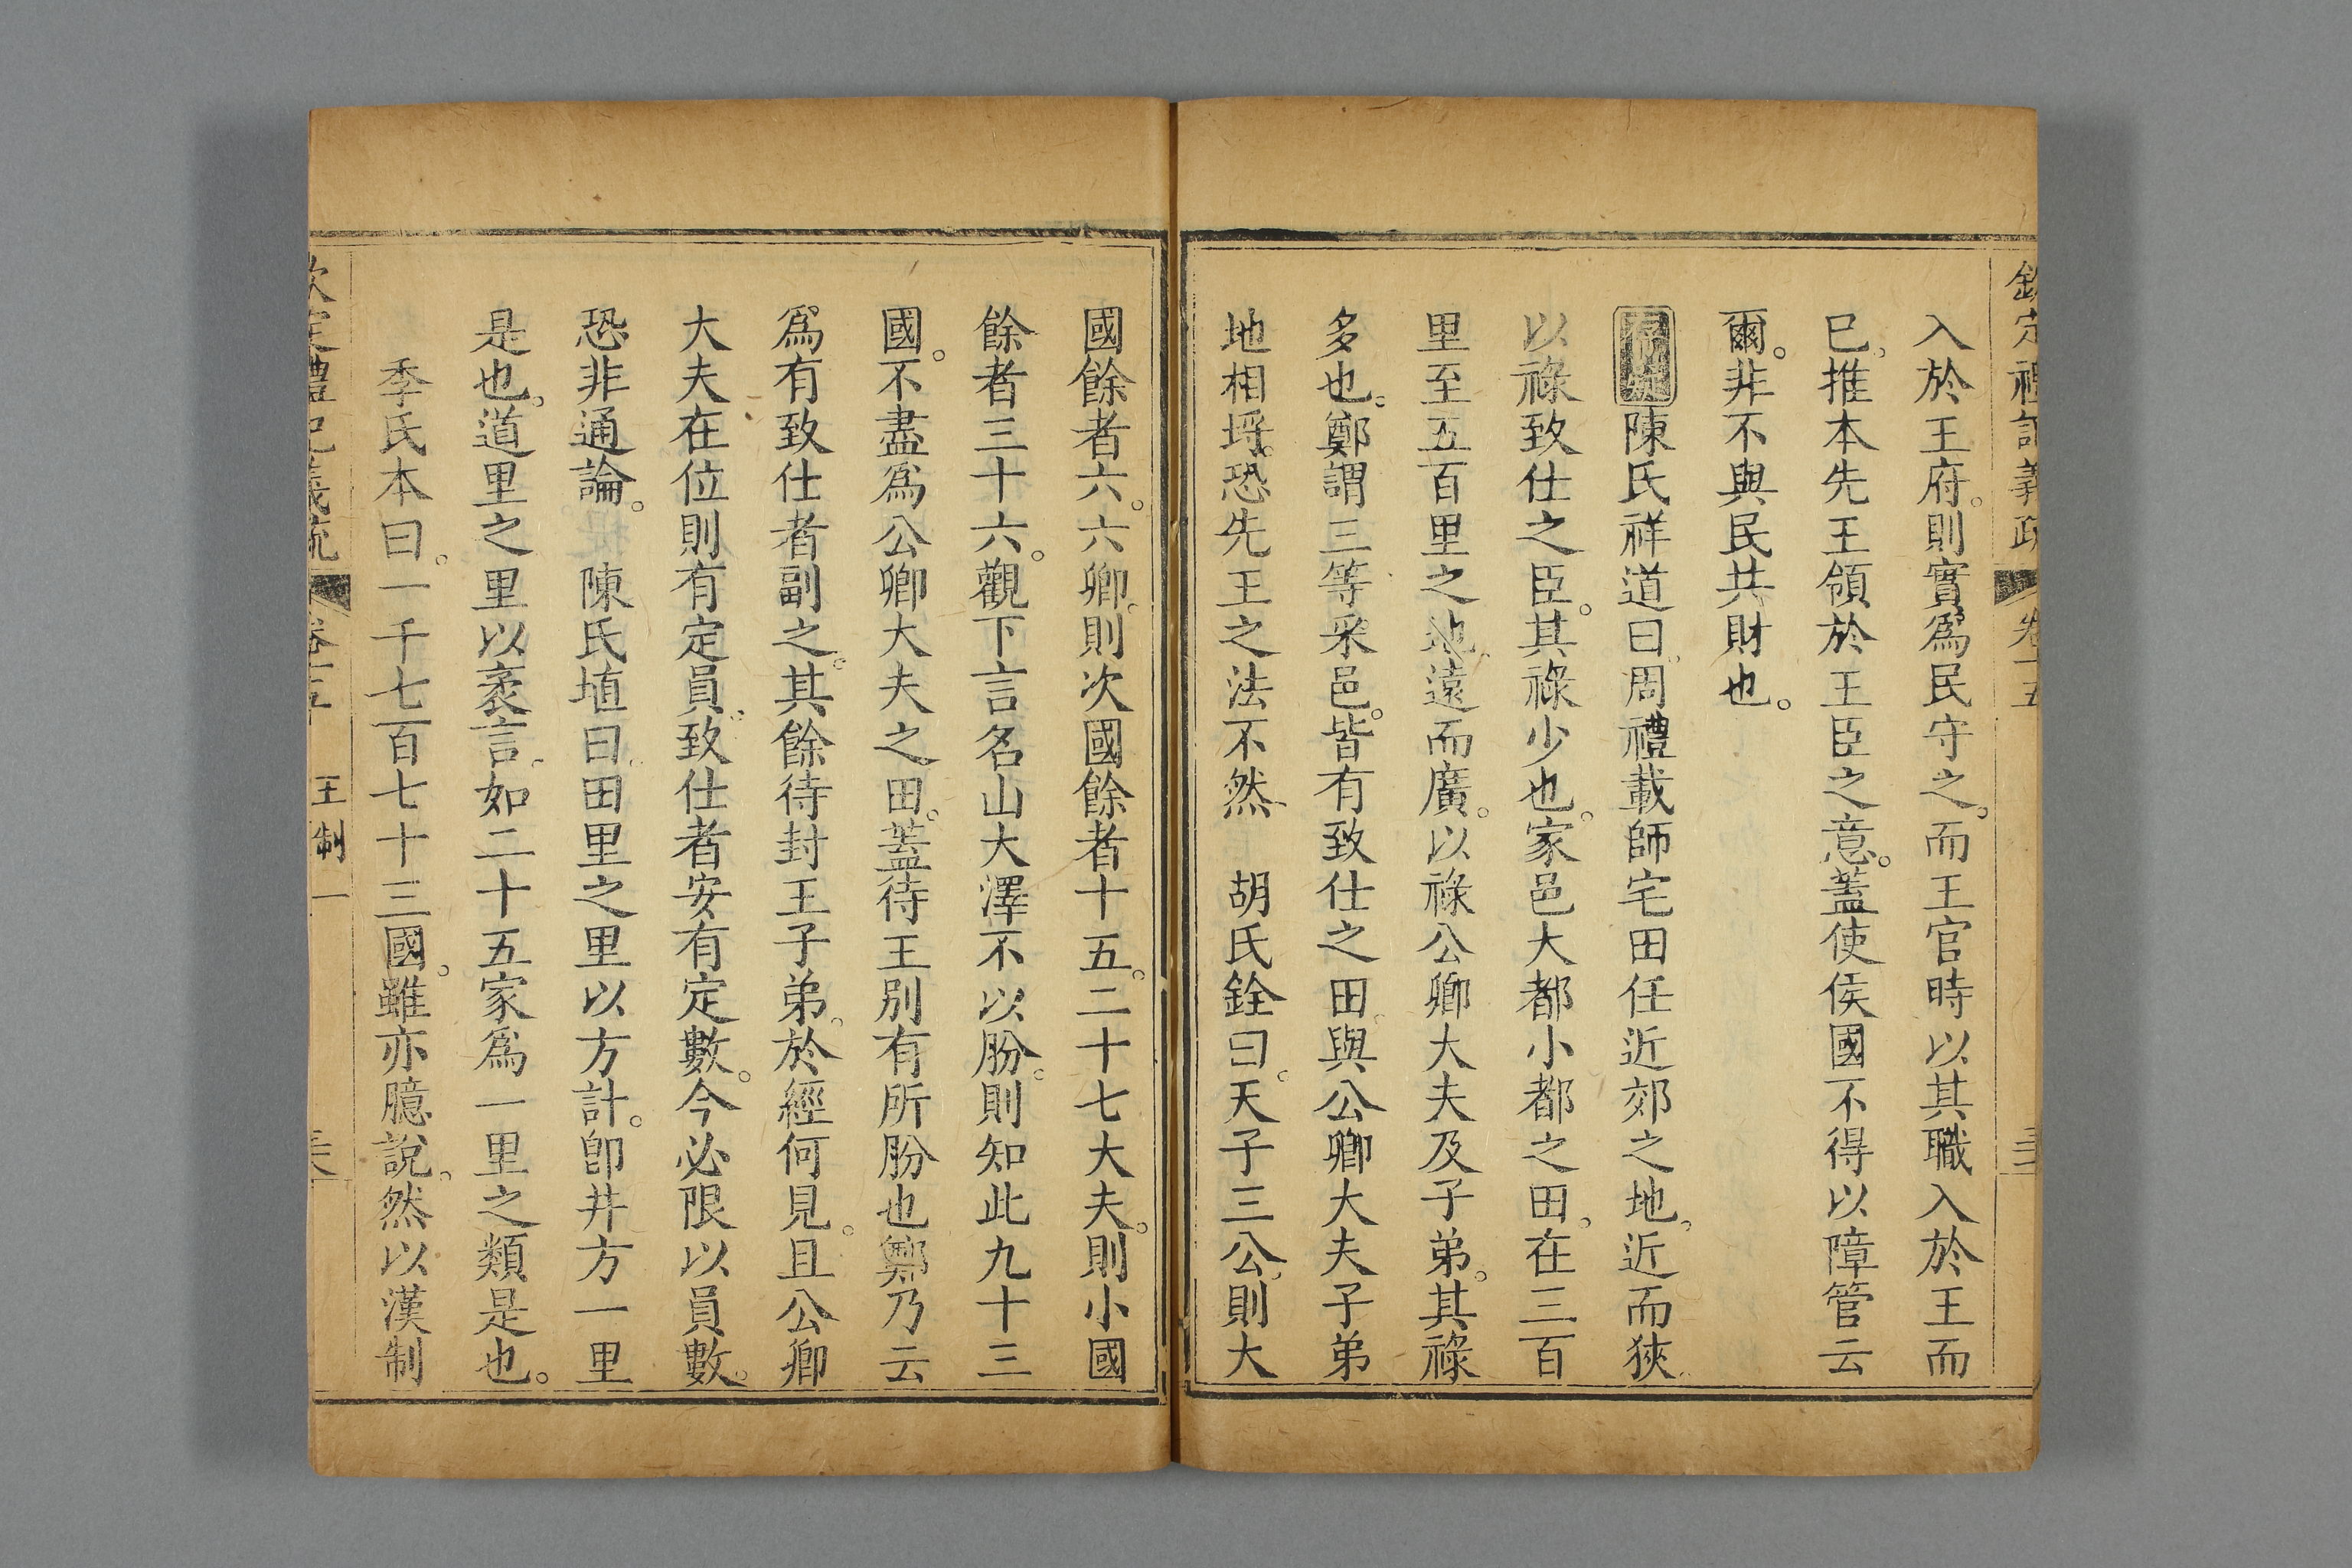 欽定禮記義疏 卷十五
入於王府。則實爲民守之。而王官時以其職入於王而
已。推本先王領於王臣之意。蓋使侯國不得以障管云
爾。非不與民共財也。
存疑陳氏祥道曰。周禮載師宅田任近郊之地。近而狹。
以祿致仕之臣。其祿少也。家邑大都小都之田。在三百
里至五百里之地。遠而廣。以祿公卿大夫及子弟。其祿
多也。鄭謂三等采邑。皆有致仕之田。與公卿大夫子弟
地相埒。恐先王之法不然 胡氏銓曰。天子三公。則大
國餘者六。六卿。則次國餘者十五。二十七大夫。則小國
餘者三十六。觀下言名山大澤不以朌。則知此九十三
國。不盡爲公卿大夫之田。蓋待王别有所朌也。鄭乃云
爲有致仕者副之。其餘待封王子弟。於經何見。且公卿
大夫在位則有定員。致仕者安有定數。今必限以員數。
恐非通論。 陳氏埴曰。田里之里以方計。卽井方一里
是也。道里之里以袤言。如二十五家爲一里之類是也。
季氏本曰。一千七百七十三國。雖亦臆說。然以漢制
欽定禮記義疏 卷十五 王制一